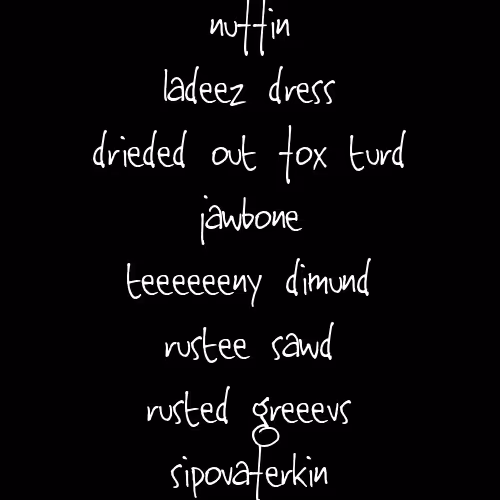 nuffin
ladeez dress
drieded out fox turd
jawbone
teeeeeeny dimund
rustee sawd
rusted greeevs
sipovaferkin